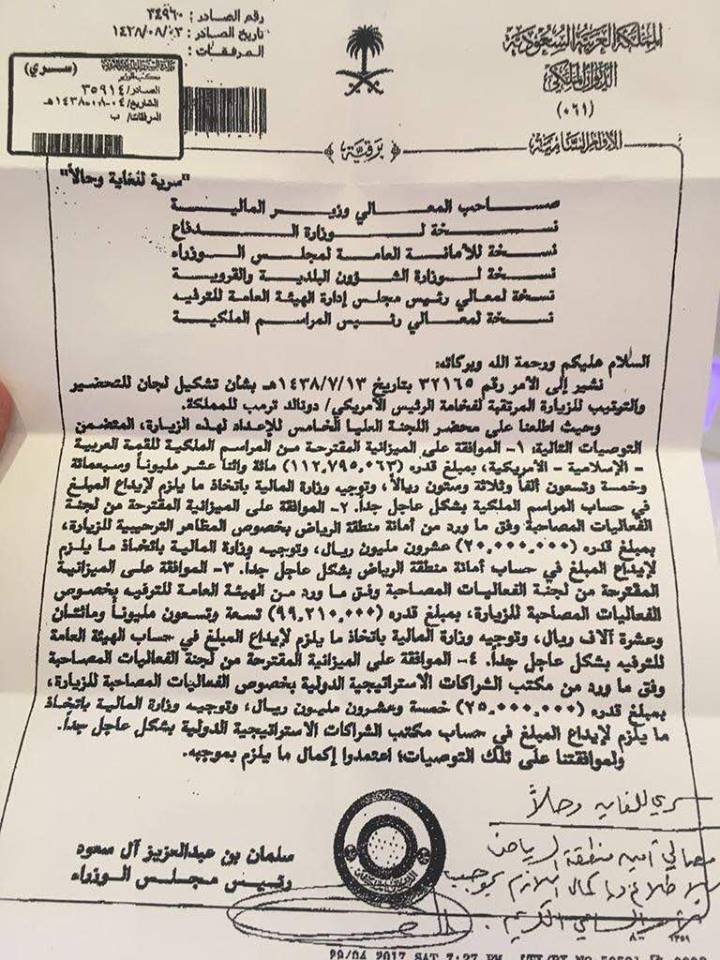 رقم الصادر : ٣٤٩٦٠
تاريخ الصادر : ١٤٣٨/٠٨/٠٣
المرفقات :
(سري)
مكتب الوزير
الصادر/ ٣٥٩١٤
التاريخ/ ٠٤-٠٨-١٤٣٨هـ
المرفقات/ ب
المملكة العربية السعودية
الديوان الملكي
(٠٦١)
الأوامر السامية
برقية
"سرية للغاية وحالاً"
صاحب المعالي وزير المالية
نسخة لوزارة الدفاع
نسخة للأمانة العامة لمجلس الوزراء
نسخة لوزارة الشؤون البلدية والقروية
نسخة لمعالي رئيس مجلس إدارة الهيئة العامة للترفيه
نسخة لمعالي رئيس المراسم الملكية
السلام عليكم ورحمة الله وبركاته:
نشير إلى الأمر رقم ٣٢١٦٥ بتاريخ ١٤٣٨/٧/١٣هـ بشأن تشكيل لجان للتحضير
والترتيب للزيارة المرتقبة لفخامة الرئيس الأمريكي/ دونالد ترمب للمملكة.
وحيث اطلعنا على محضر اللجنة العليا الخامس للإعداد لهذه الزيارة، المتضمن
التوصيات التالية: ١- الموافقة على الميزانية المقترحة من المراسم الملكية للقمة العربية
- الإسلامية - الأمريكية، بمبلغ قدره (١١٢,٧٩٥,٠٦٣) مائة واثنا عشر مليوناً وسبعمائة
وخمسة وتسعون ألفاً وثلاثة وستون ريالاً، وتوجيه وزارة المالية باتخاذ ما يلزم لإيداع المبلغ
في حساب المراسم الملكية بشكل عاجل جداً. ٢- الموافقة على الميزانية المقترحة من لجنة
الفعاليات المصاحبة وفق ما ورد من أمانة منطقة الرياض بخصوص المظاهر الترحيبية للزيارة،
بمبلغ قدره (٢٠,٠٠٠,٠٠٠) عشرون مليون ريال، وتوجيه وزارة المالية باتخاذ ما يلزم
لإيداع المبلغ في حساب أمانة منطقة الرياض بشكل عاجل جداً. ٣- الموافقة على الميزانية
المقترحة من لجنة الفعاليات المصاحبة وفق ما ورد من الهيئة العامة للترفيه بخصوص
الفعاليات المصاحبة للزيارة، بمبلغ قدره (٩٩,٢١٠,٠٠٠) تسعة وتسعون مليوناً ومائتان
وعشرة آلاف ريال، وتوجيه وزارة المالية باتخاذ ما يلزم لإيداع المبلغ في حساب الهيئة العامة
للترفيه بشكل عاجل جداً. ٤- الموافقة على الميزانية المقترحة من لجنة الفعاليات المصاحبة
وفق ما ورد من مكتب الشراكات الاستراتيجية الدولية بخصوص الفعاليات المصاحبة للزيارة،
بمبلغ قدره (٢٥,٠٠٠,٠٠٠) خمسة وعشرون مليون ريال، وتوجيه وزارة المالية باتخاذ
ما يلزم لإيداع المبلغ في حساب مكتب الشراكات الاستراتيجية الدولية بشكل عاجل جداً.
ولموافقتنا على تلك التوصيات؛ اعتمدوا إكمال ما يلزم بموجبه.
سلمان بن عبدالعزيز آل سعود
رئيس مجلس الوزراء
سري للغاية وحالاً
معالي أمين منطقة الرياض
للاطلاع وإكمال اللازم بموجب
الأمر السامي الكريم.
29/04 2017 SAT 7:27 PM